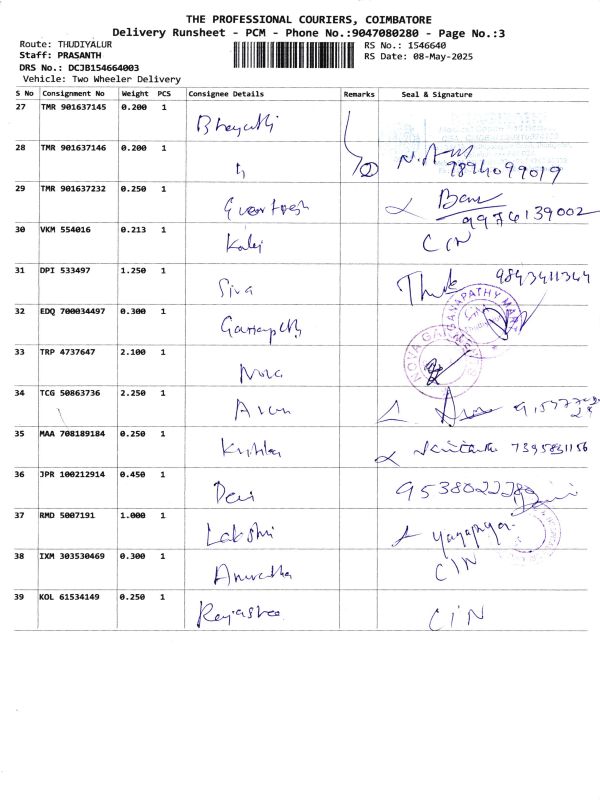 THE PROFESSIONAL COURIERS, COIMBATORE
Delivery Runsheet - PCM - Phone No.:9047080280 - Page No.:3
Route: THUDIYALUR
RS No.: 1546640
Staff: PRASANTH
RS Date: 08-May-2025
DRS No.: DCJB154664003
Vehicle: Two Wheeler Delivery
S No Consignment No Weight PCS Consignee Details Remarks Seal & Signature
27 TMR 901637145 0.200 1
28 TMR 901637146 0.200 1 9894099019
29 TMR 901637232 0.250 1 9976139002
30 VKM 554016 0.213 1 CIN
31 DPI 533497 1.250 1 Siva 9843411344
32 EDQ 700034497 0.300 1 GANAPATHY
33 TRP 4737647 2.100 1 Nova NOVA
34 TCG 50863736 2.250 1 Arun
35 MAA 708189184 0.250 1 7395831156
36 JPR 100212914 0.450 1 Devi
37 RMD 5007191 1.000 1 Lakshmi
38 IXM 303530469 0.300 1 Anuratha CIN
39 KOL 61534149 0.250 1 CIN